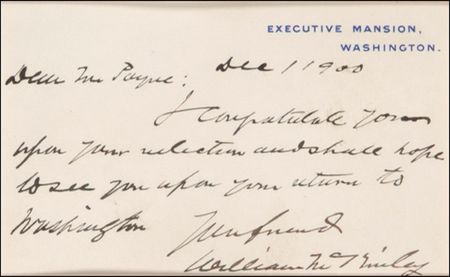 EXECUTIVE MANSION,
WASHINGTON.
Dec 1 1900
Dear Mr Payne:
I congratulate you
upon your reelection and shall hope
to see you upon your return to
Washington
Your friend
William McKinley